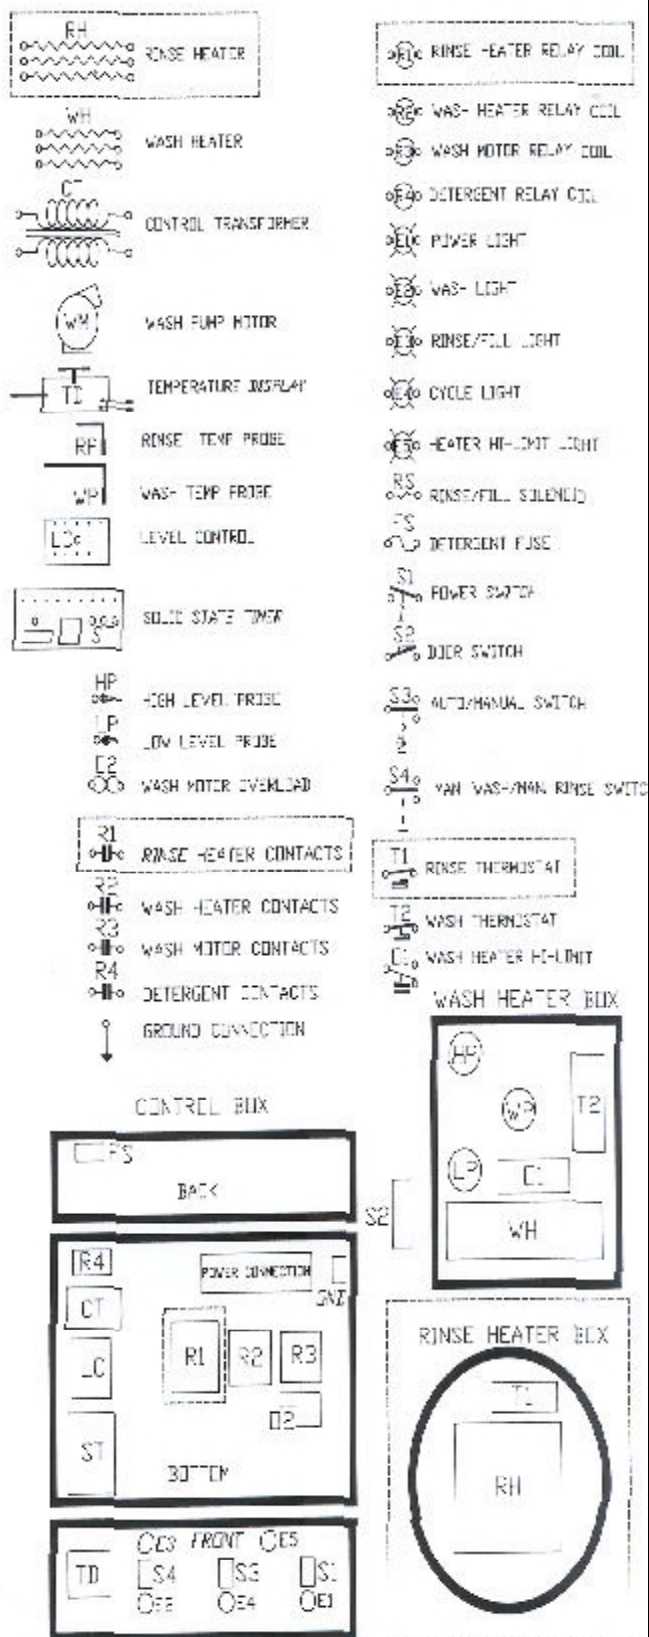 RH
RINSE HEATER
WH
WASH HEATER
CT
CONTROL TRANSFORMER
WM
WASH PUMP MOTOR
TD
TEMPERATURE DISPLAY
RP
RINSE TEMP PROBE
WP
WASH TEMP PROBE
LC
LEVEL CONTROL
SOLID STATE TIMER
HP
HIGH LEVEL PROBE
LP
LOW LEVEL PROBE
WASH MOTOR OVERLOAD
R1
RINSE HEATER CONTACTS
R2
WASH HEATER CONTACTS
R3
WASH MOTOR CONTACTS
R4
DETERGENT CONTACTS
GROUND CONNECTION
R1 RINSE HEATER RELAY COIL
R2 WASH HEATER RELAY COIL
R3 WASH MOTOR RELAY COIL
R4 DETERGENT RELAY COIL
E1 POWER LIGHT
E2 WASH LIGHT
E3 RINSE/FILL LIGHT
E4 CYCLE LIGHT
E5 HEATER HI-LIMIT LIGHT
RS
RINSE/FILL SOLENOID
FS
DETERGENT FUSE
S1
POWER SWITCH
S2
DOOR SWITCH
S3
AUTO/MANUAL SWITCH
S4
MAN WASH/MAN RINSE SWITC
T1
RINSE THERMOSTAT
T2
WASH THERMOSTAT
WASH HEATER HI-LIMIT
WASH HEATER BOX
HP
WP
T2
LP
WH
S2
CONTROL BOX
FS
BACK
R4
POWER CONNECTION
CT
R1
R2
R3
LC
ST
BOTTOM
E3 FRONT E5
TD
S4
S3
S1
E2
E4
E1
RINSE HEATER BOX
T1
RH